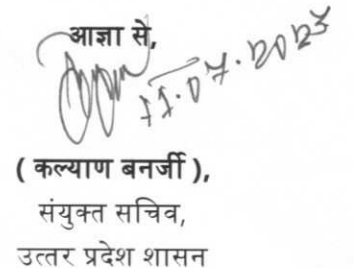 आज्ञा से,
11.07.2023
( कल्याण बनर्जी ),
संयुक्त सचिव,
उत्तर प्रदेश शासन